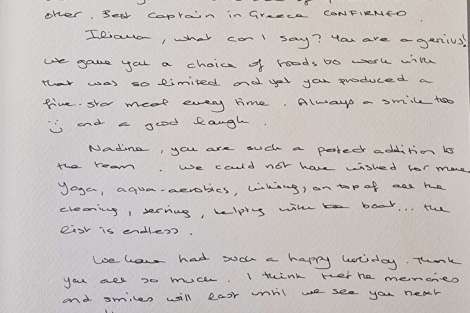 other. Best captain in Greece CONFIRMED.
Iliana, what can I say? You are a genius!
We gave you a choice of foods to work with
that was so limited and yet you produced a
five-star meal every time. Always a smile too
:) and a good laugh.
Nadine, you are such a perfect addition to
the team. We could not have wished for more
Yoga, aqua-aerobics, hiking, on top of all the
cleaning, serving, helping with boat... the
list is endless.
We have had such a happy holiday. Thank
you all so much. I think that the memories
and smiles will last until we see you next